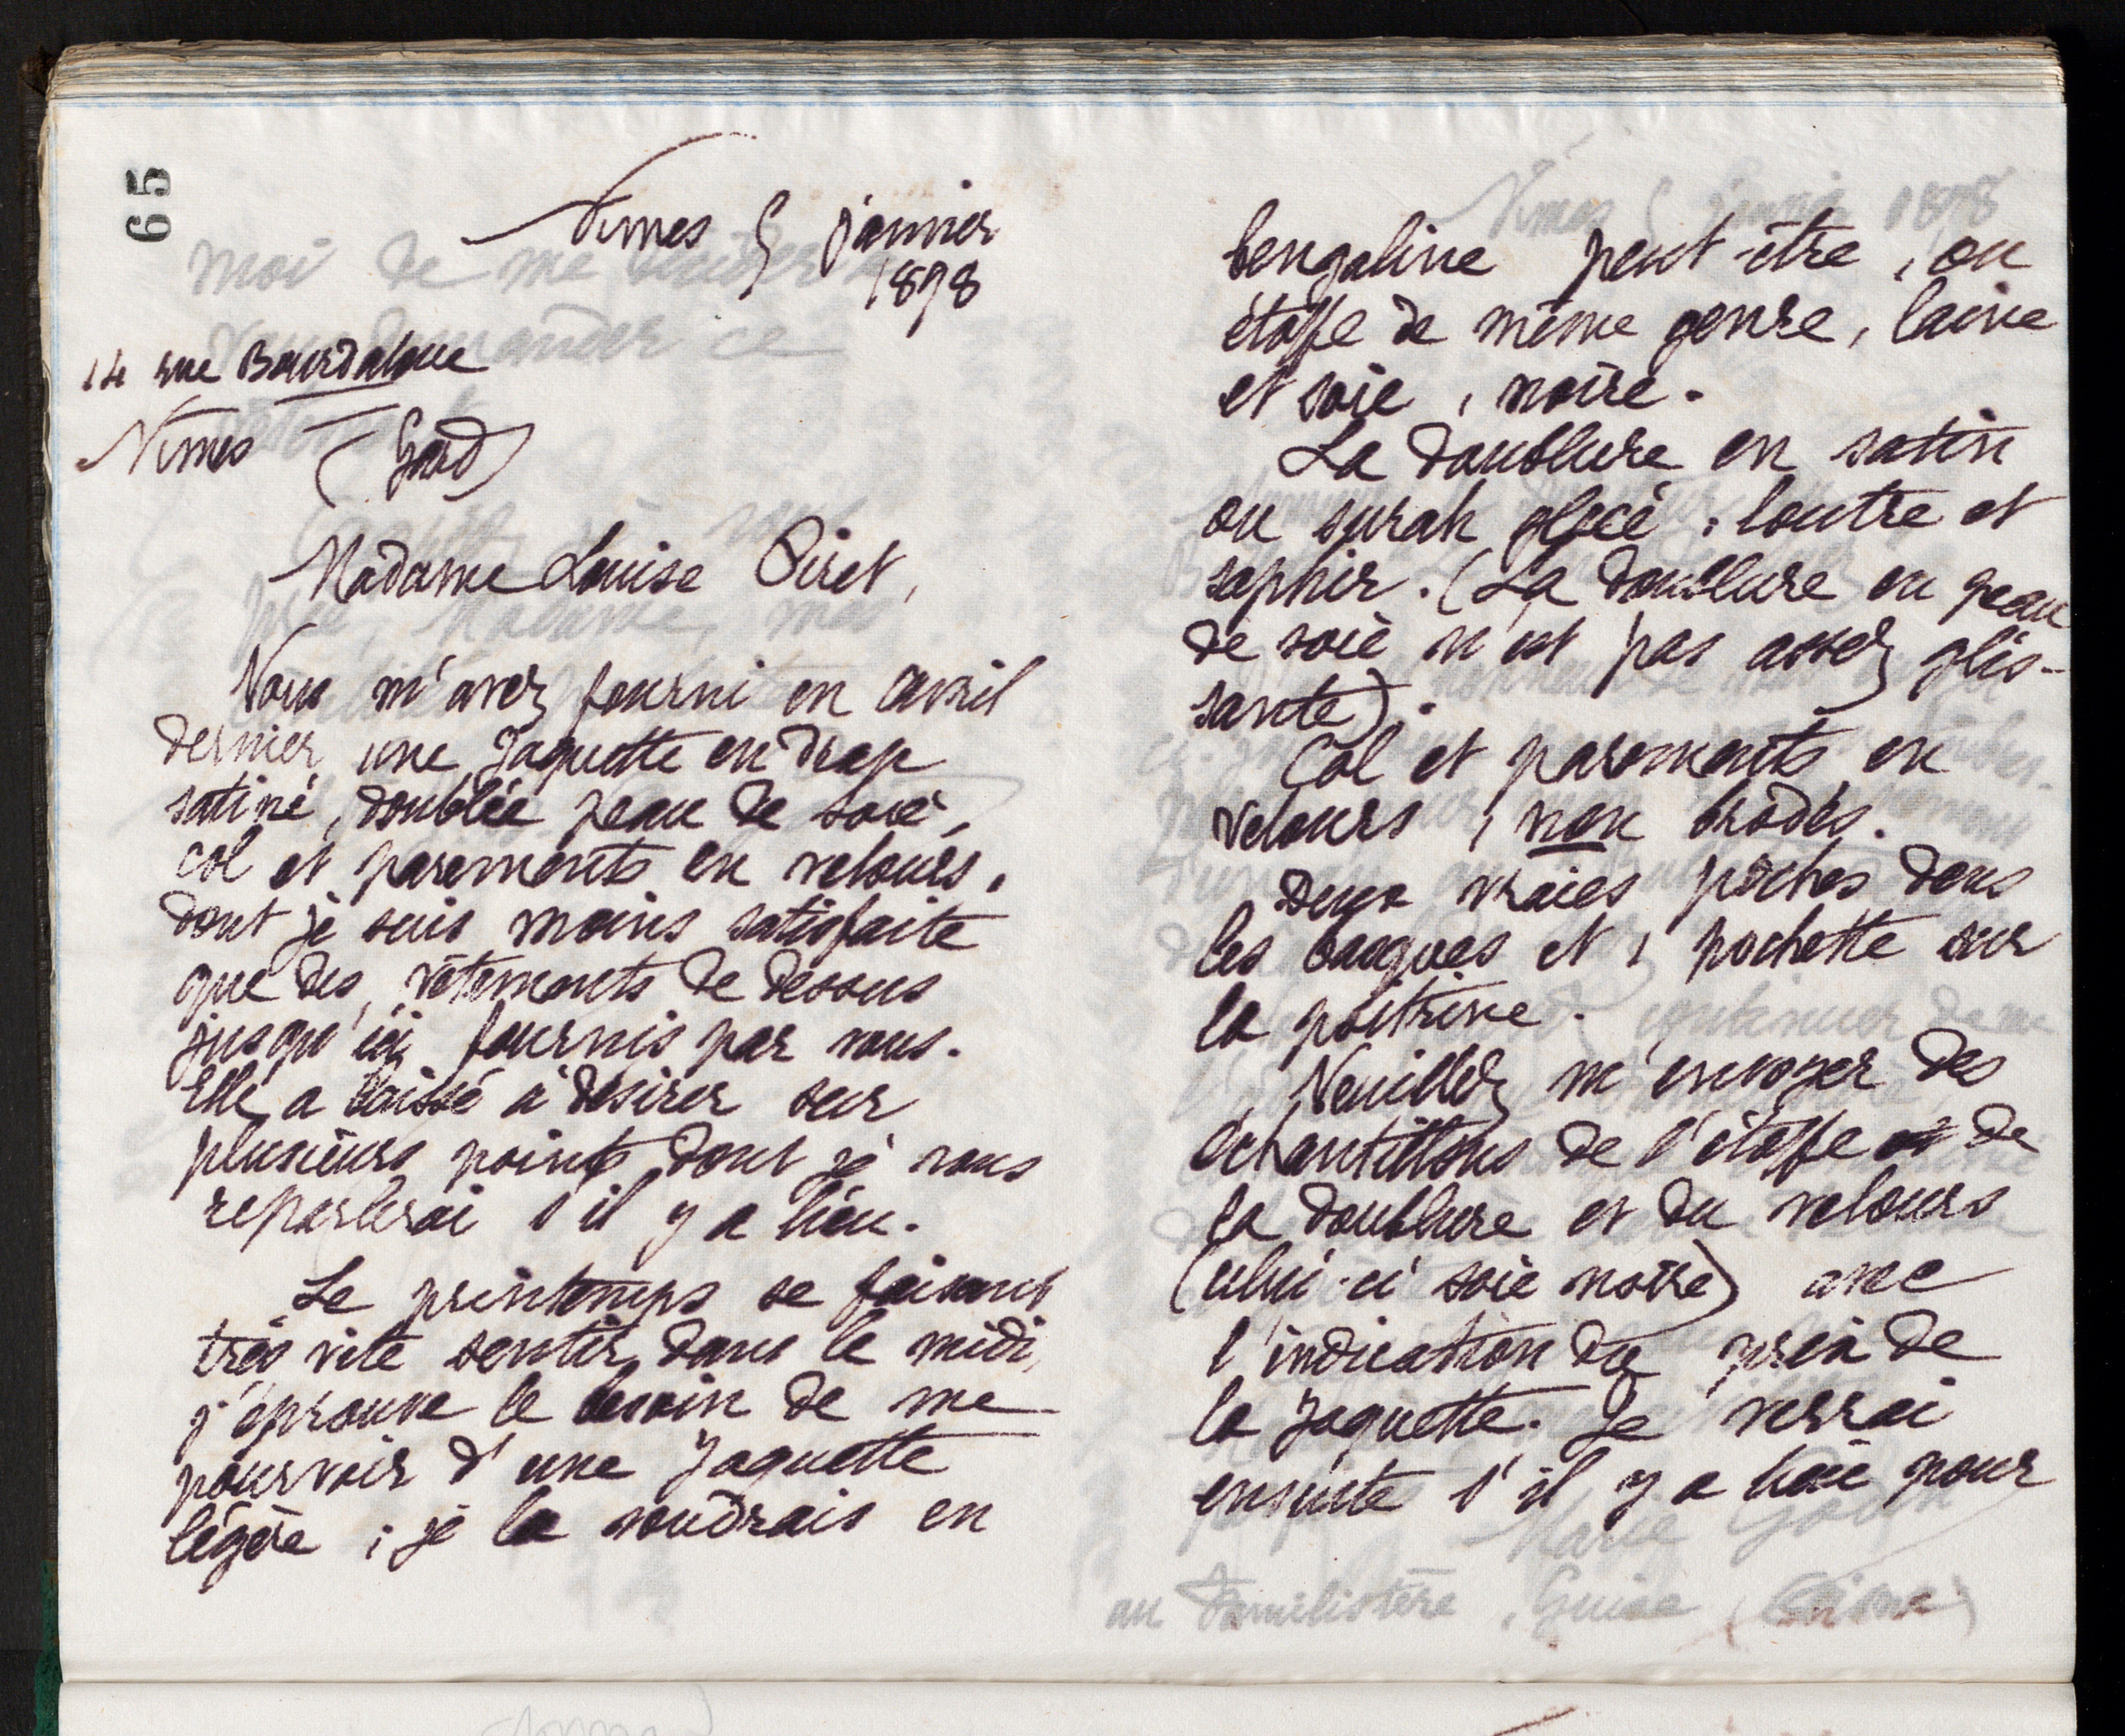 65
Nimes 5 janvier
1898
14 rue Bourdaloue
Nimes (Gard)
Madame Louise Piret,
Vous m'avez fourni en avril
dernier une Jaquette en drap
satiné, doublée peau de soie,
col et parements en velours,
dont je suis moins satisfaite
que des vêtements de dessus
jusqu'ici fournis par vous.
Elle a laissé à désirer sur
plusieurs points dont je vous
reparlerai s'il y a lieu.
Le printemps se faisant
très vite sentir dans le midi,
j'éprouve le besoin de me
pourvoir d'une Jaquette
légère ; je la voudrais en
bengaline peut-être, ou
étoffe de même genre, laine
et soie, noire.
La doublure en satin
ou surah glacé : loutre et
saphir. (La doublure en peau
de soie n'est pas assez glis-
sante).
Col et parements en
velours, non brodés.
Deux vraies poches dans
les basques et 1 pochette sur
la poitrine.
Veuillez m'envoyer des
échantillons de l'étoffe de
la doublure et du velours
(celui-ci soie noire) avec
l'indication du prix de
la Jaquette. Je verrai
ensuite s'il y a lieu pour